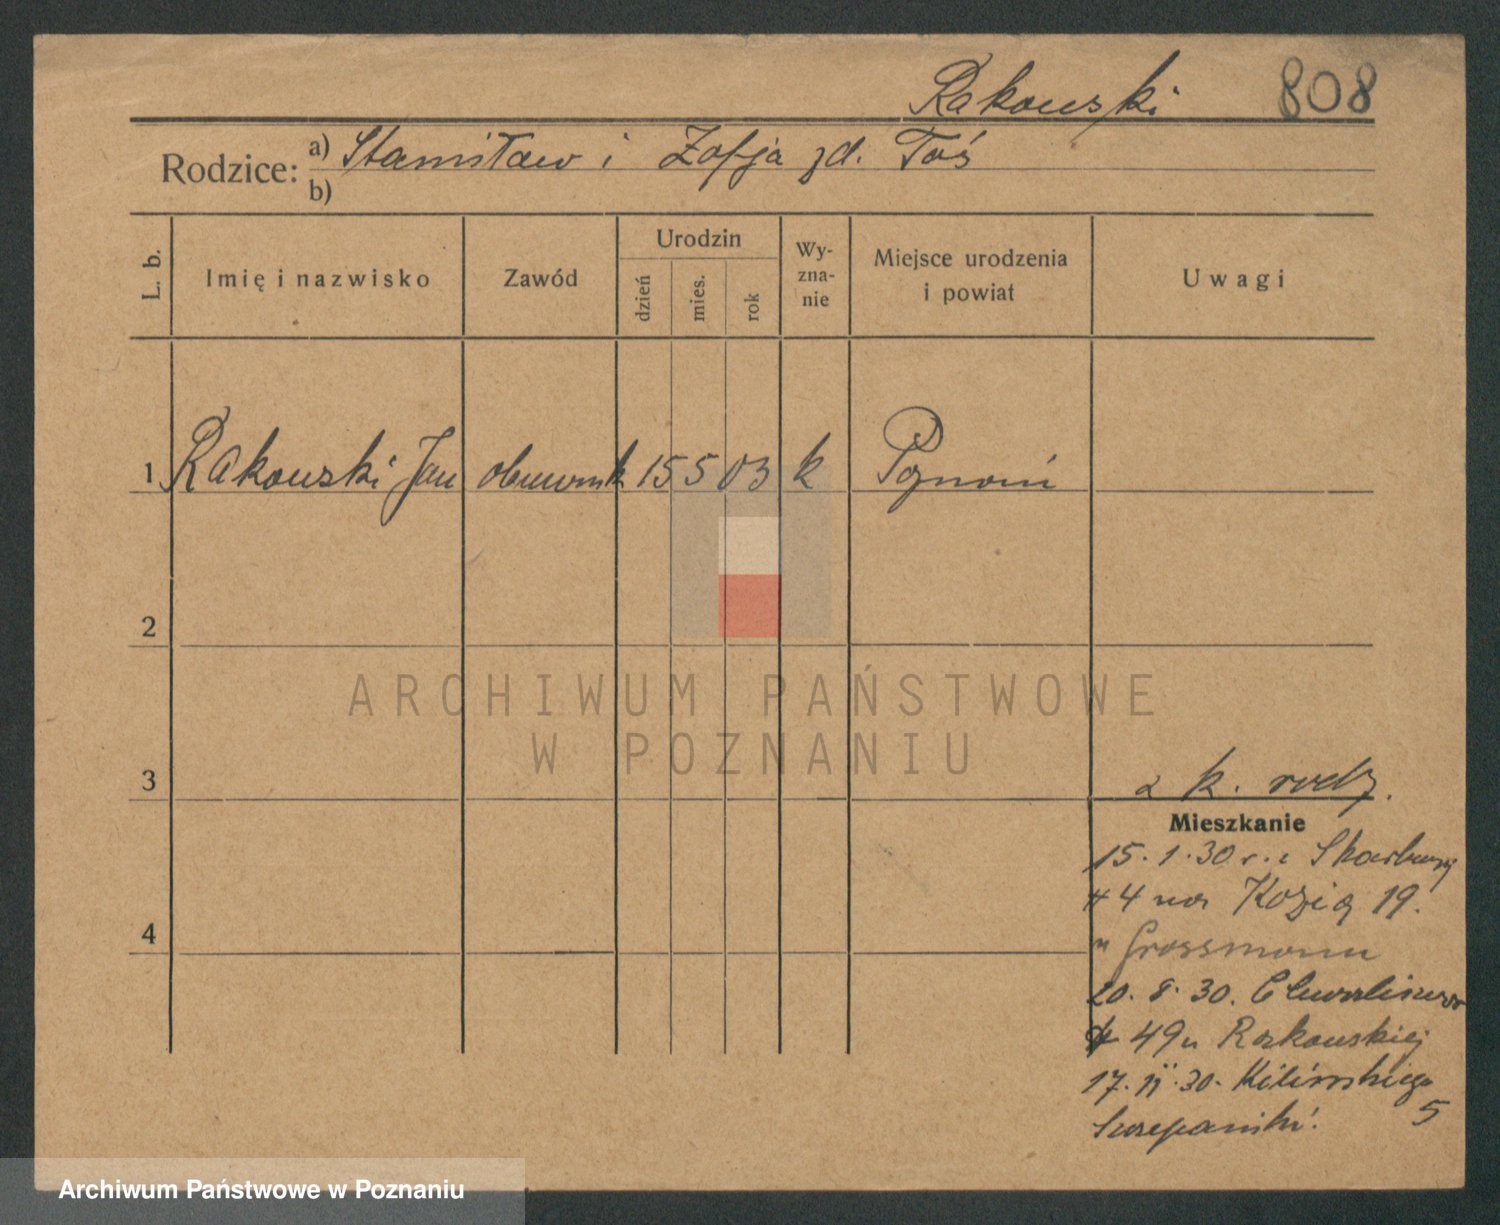 Rakowski 808
Rodzice: a) Stanisław i Zofja zd. Toś
b)
L. b. Imię i nazwisko Zawód Urodzin dzień mies. rok Wy-zna-nie Miejsce urodzenia i powiat Uwagi
1 Rakowski Jan obuwnik 15 5 03 k Poznań
2
ARCHIWUM PAŃSTWOWE
W POZNANIU
3
z k. rodz.
Mieszkanie
15. 1. 30 r. z Skarbowej
4 na Kozią 19.
u Grossmann
4
20. 8. 30. Chwaliszewo
49 u Raszkowskiej
17. 11. 30. Kilińskiego
5
Szczepaniki
Archiwum Państwowe w Poznaniu